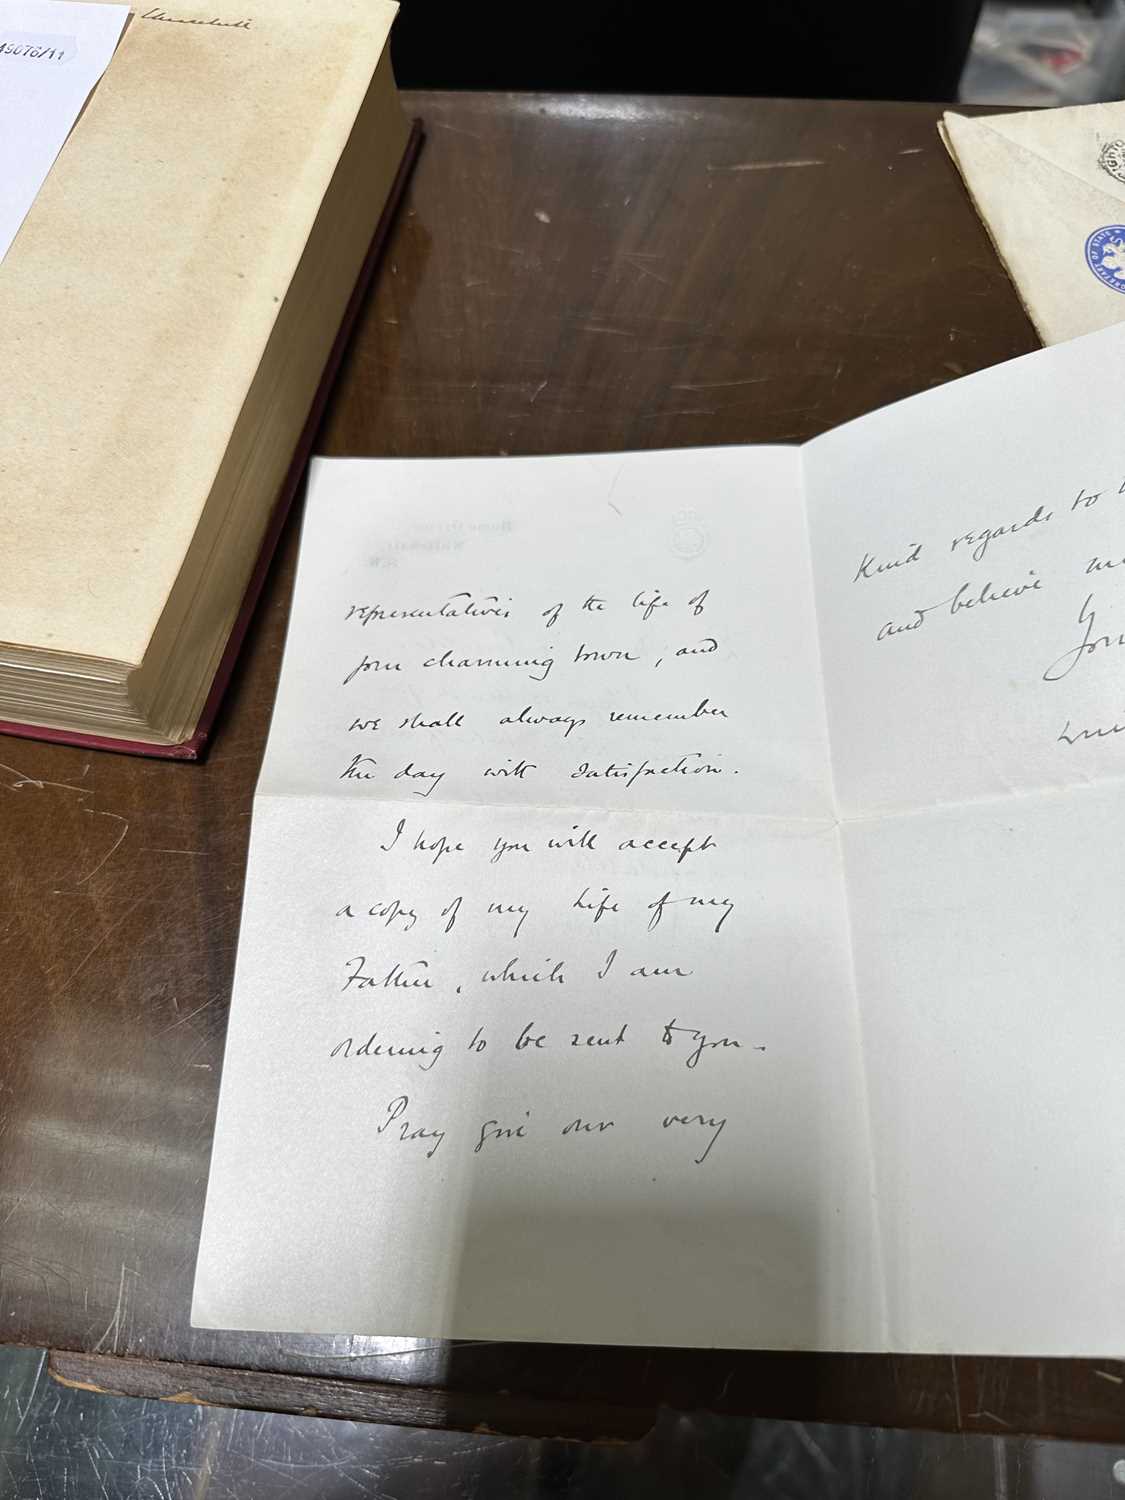 Churchill
49076/11
SECRETARY OF STATE
representatives of the life of
your charming town, and
we shall always remember
the day with satisfaction.
I hope you will accept
a copy of my Life of my
Father, which I am
ordering to be sent to you.
Pray give our very
Kind regards to
and believe me